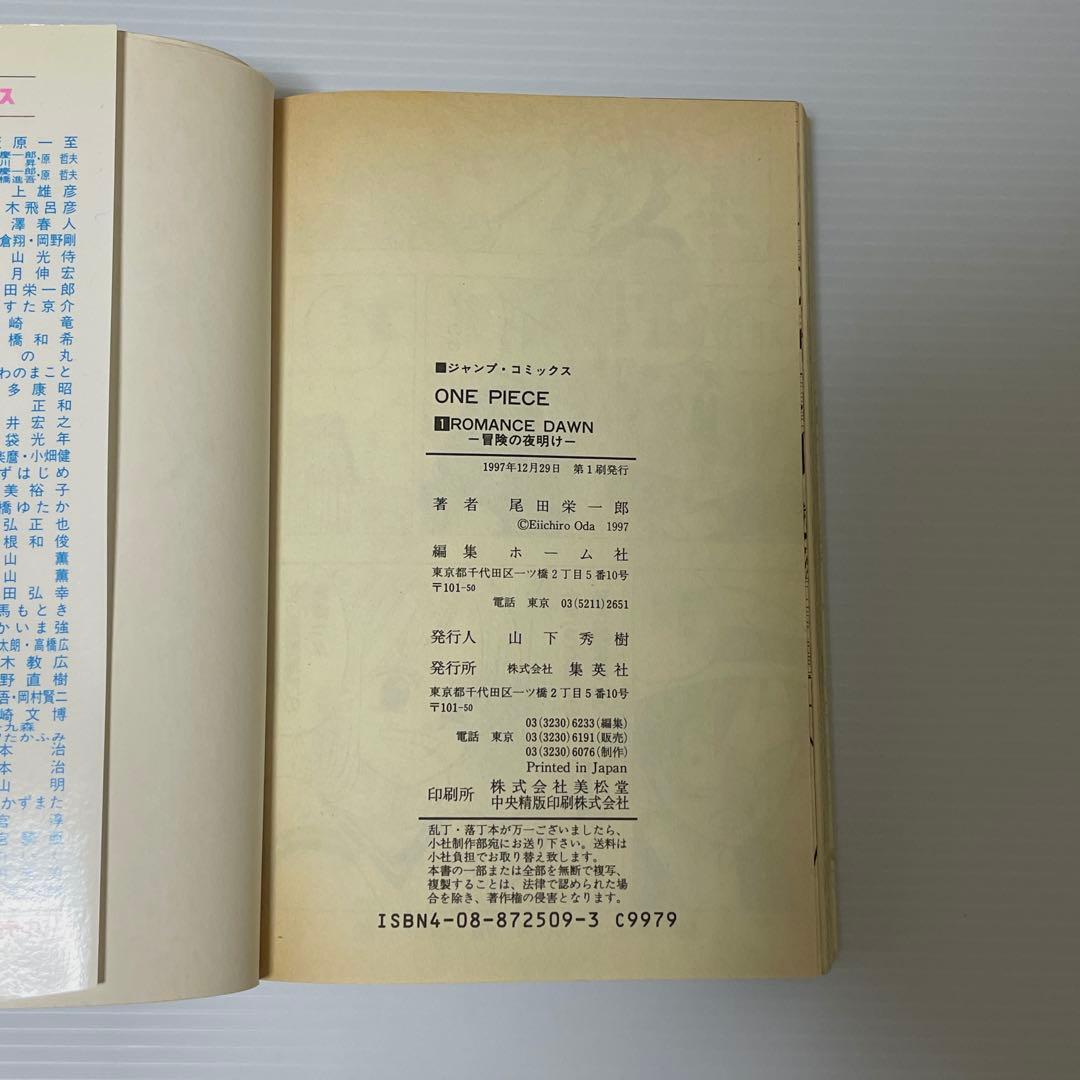 ■ジャンプ・コミックス
ONE PIECE
1 ROMANCE DAWN
―冒険の夜明け―
1997年12月29日 第1刷発行
著者 尾田栄一郎
©Eiichiro Oda 1997
編集 ホーム社
東京都千代田区一ツ橋2丁目5番10号
〒101-50
電話 東京 03(5211)2651
発行人 山下秀樹
発行所 株式会社 集英社
東京都千代田区一ツ橋2丁目5番10号
〒101-50
03(3230)6233(編集)
電話 東京 03(3230)6191(販売)
03(3230)6076(制作)
Printed in Japan
印刷所 株式会社美松堂
中央精版印刷株式会社
乱丁・落丁本が万一ございましたら、
小社制作部宛にお送り下さい。送料は
小社負担でお取り替え致します。
本書の一部または全部を無断で複写、
複製することは、法律で認められた場
合を除き、著作権の侵害となります。
ISBN4-08-872509-3 C9979
ス
原一至
慶一郎・原哲夫
川昇
慶一郎・原哲夫
橋進吾
上雄彦
木飛呂彦
澤春人
倉翔・岡野剛
山光侍
月伸宏
田栄一郎
すた京介
崎竜
橋和希
の丸
わのまこと
多康昭
正和
井宏之
袋光年
麿・小畑健
ずはじめ
美裕子
橋ゆたか
弘正也
根和俊
山薫
山薫
田弘幸
馬もとき
かいま強
太朗・高橋広
木教広
野直樹
吾・岡村賢二
崎文博
九森
たかふみ
本治
本治
山明
かずまた
宮淳